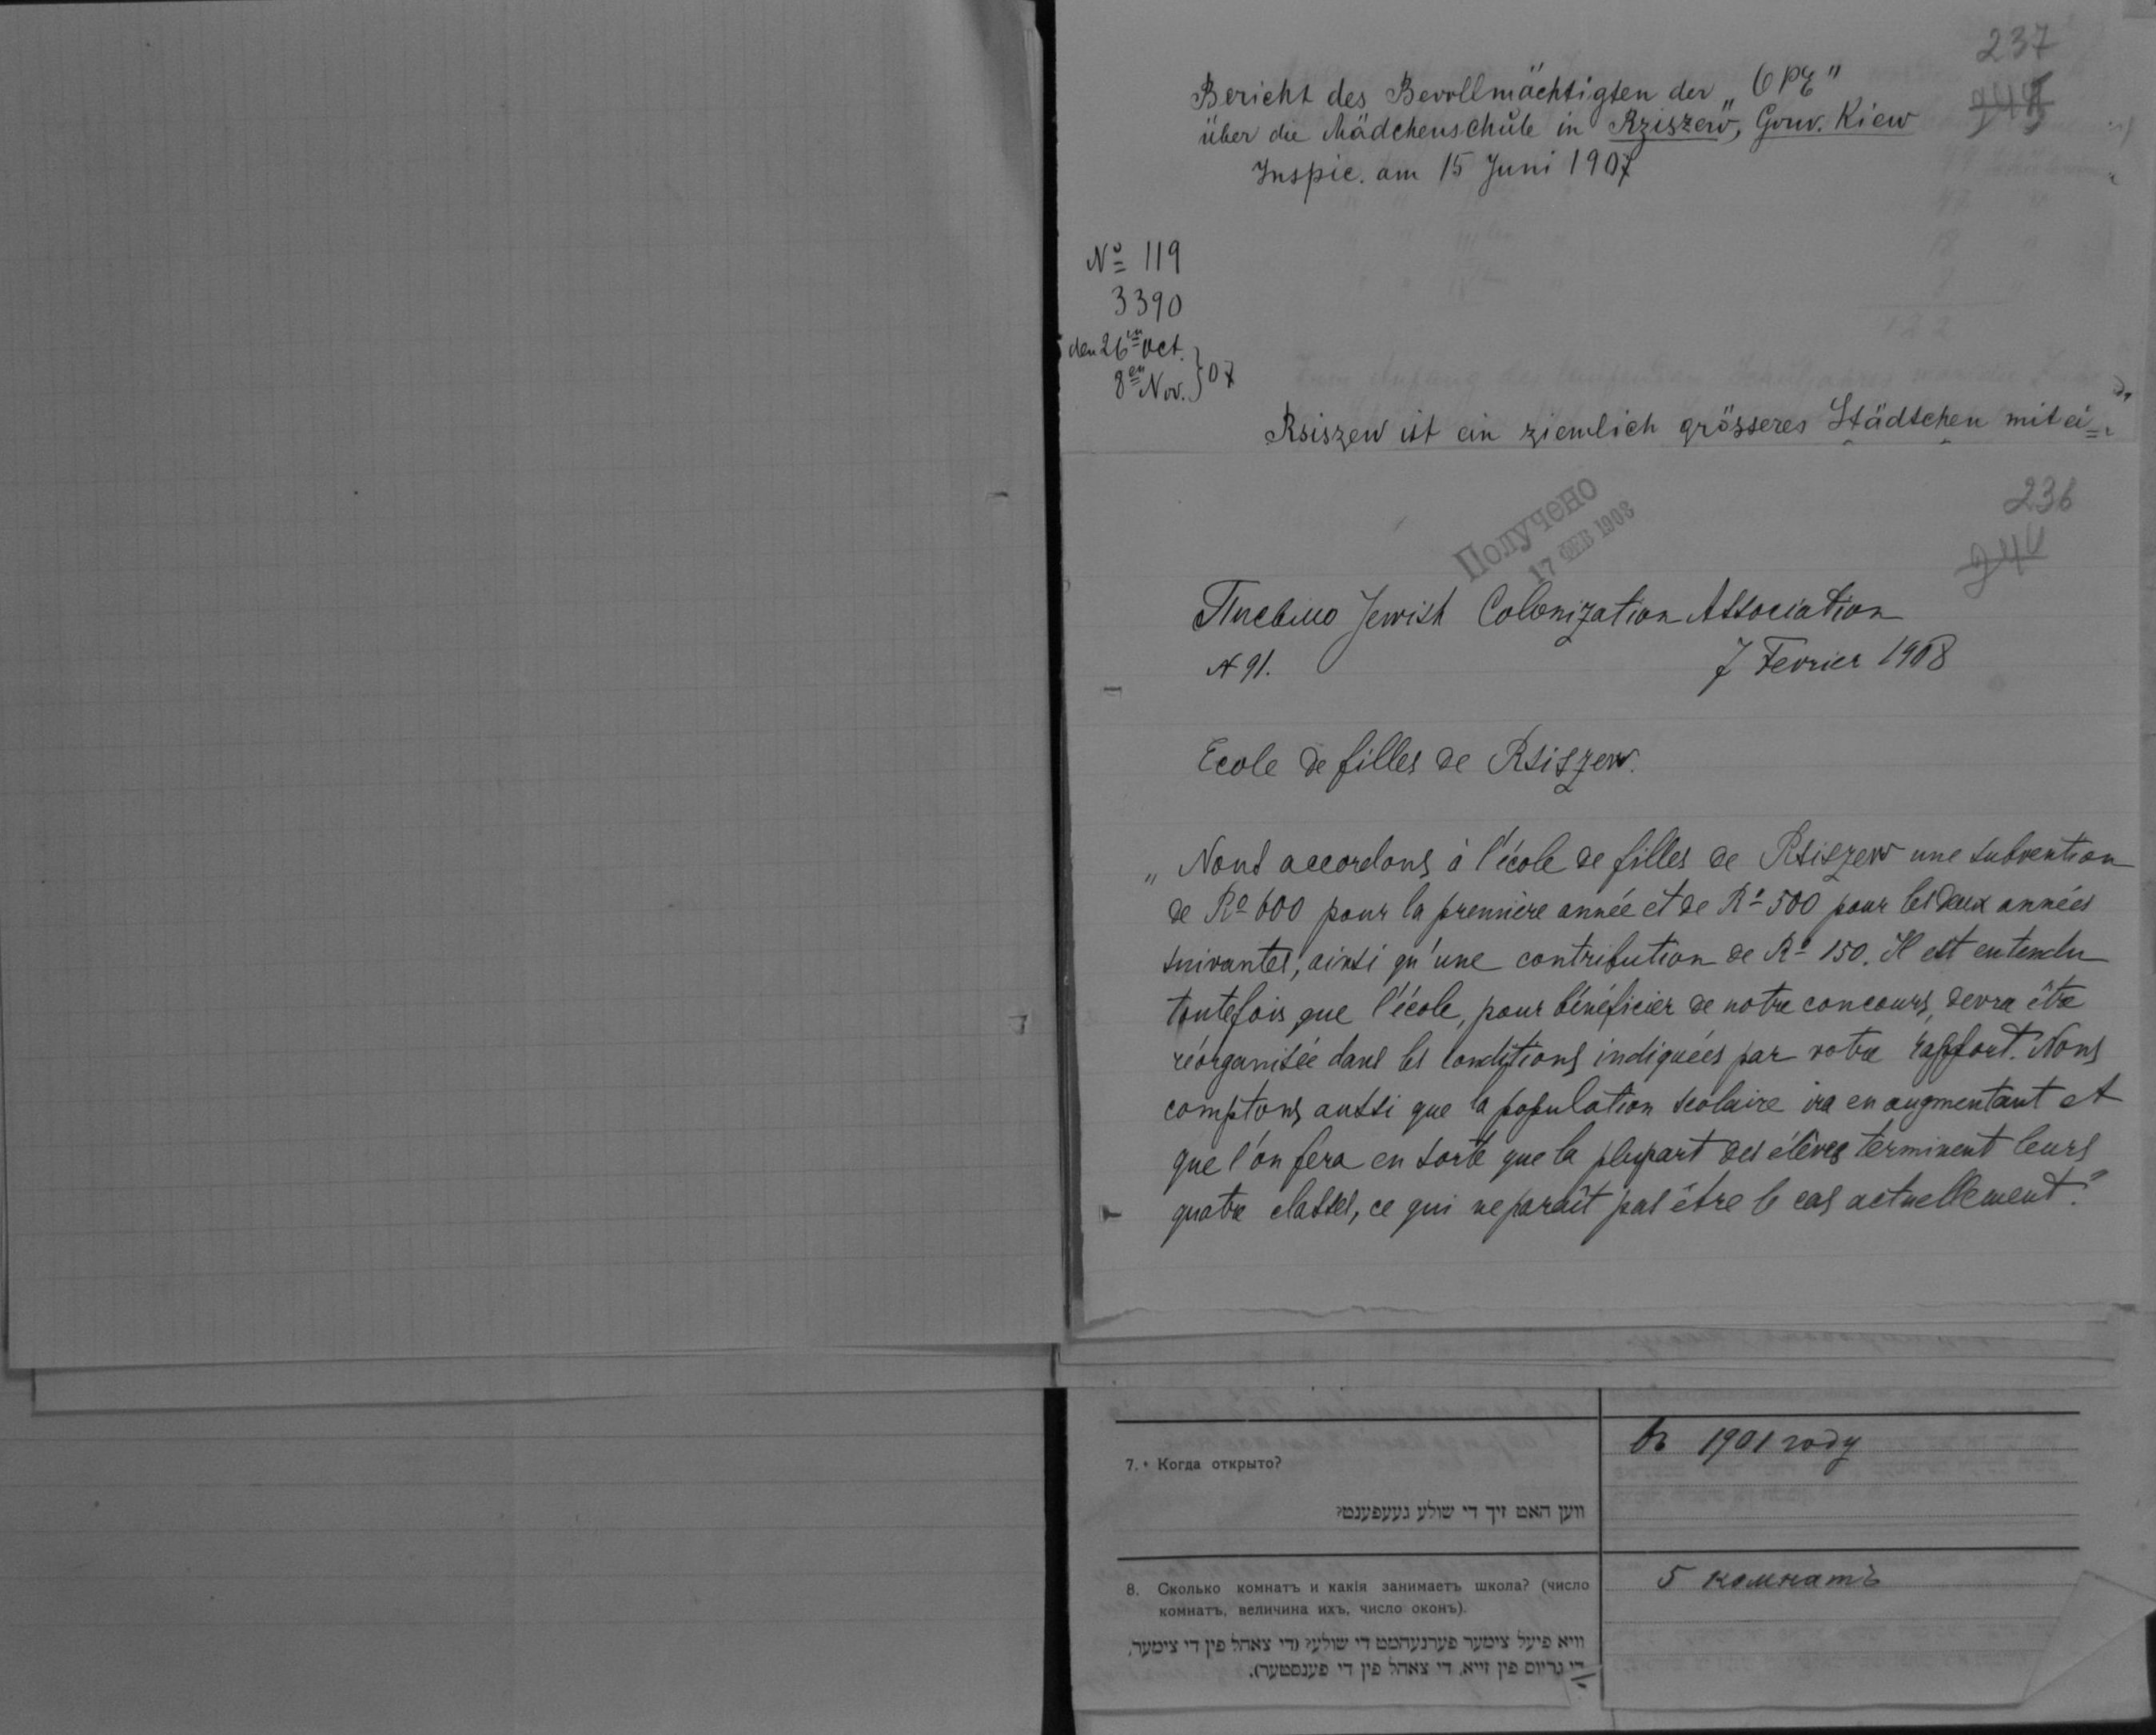 237
Bericht des Bevollmächtigten der „OPE"
über die Mädchenschule in „Rziszew", Gouv. Kiew
Inspic. am 15 Juni 1907
№ 119
3390
den 26ten Oct.
8en Nov. } 07
Rsiszew ist ein ziemlich grösseres Städtchen mit ei=
236
244
Получено
17 ФЕВ 1908
Письмо Jewish Colonization Association
№ 91. 7 Fevrier 1908
Ecole de filles de Rsiszew.
„Nous accordons à l'école de filles de Rsiszew une subvention
de Ro 600 pour la première année et de Ro 500 pour les deux années
suivantes, ainsi qu'une contribution de Ro 150. Il est entendu
toutefois que l'école, pour bénéficier de notre concours, devra être
réorganisée dans les conditions indiquées par votre rapport. Nous
comptons aussi que la population scolaire ira en augmentant et
que l'on fera en sorte que la plupart des élèves terminent leurs
quatre classes, ce qui ne paraît pas être le cas actuellement."
7. Когда открыто?
въ 1901 году
ווען האט זיך די שולע געעפענט?
8. Сколько комнатъ и какія занимаетъ школа? (число
комнатъ, величина ихъ, число оконъ).
5 комнатъ
וויא פיעל צימער פערנעהמט די שולע? (די צאהל פין די צימער,
די גרויס פין זייא, די צאהל פין די פענסטער).